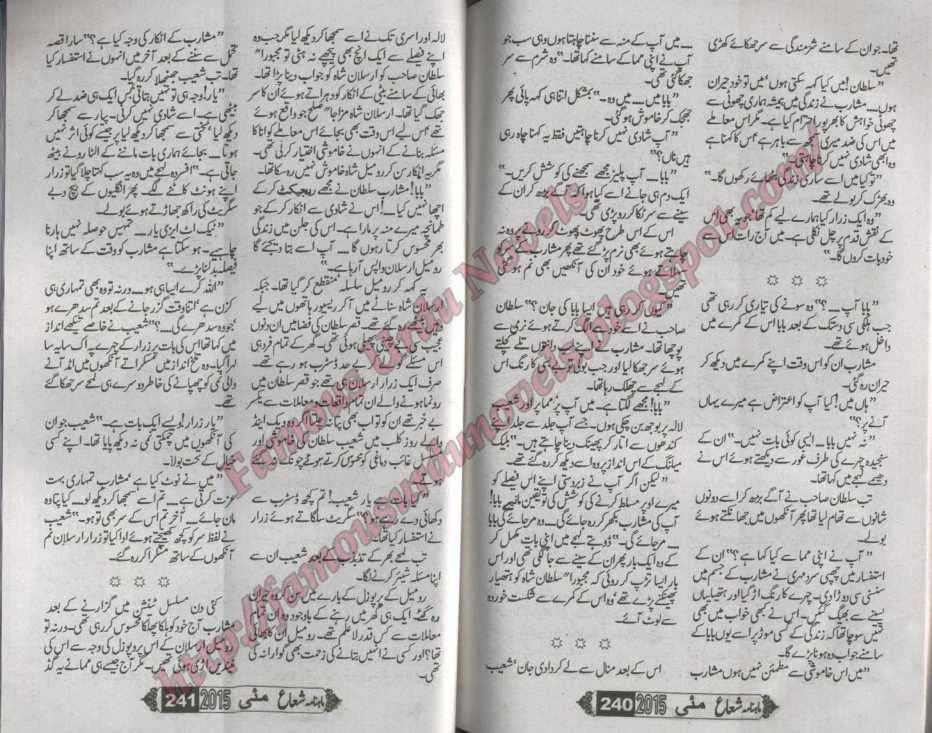 تھا۔ جو ان کے سامنے شرمندگی سے سر جھکائے کھڑی
تھیں۔
"سلطان! میں کیا کہہ سکتی ہوں میں تو خود حیران
ہوں۔ مشارب نے زندگی میں ہمیشہ ہماری چھوٹی سے
چھوٹی خواہش کا بھرپور احترام کیا ہے۔ مگر اس معاملے
میں اس کی ضد میری سمجھ سے باہر ہے
وہ ابھی شادی نہیں کرنا چاہتی۔"
"تو کیا میں اسے ساری زندگی بٹھائے رکھوں گا۔"
وہ بھڑک کر بولے تھے۔
"وہ ایک زرار کیا ہمارے لیے کم تھا، جو یہ بھی اس
کے نقش قدم پر چل نکلی ہے۔ میں آج رات اس سے
خود بات کروں گا۔"
"بابا آپ ۔۔۔؟" وہ سونے کی تیاری کر رہی تھی
جب ہلکی سی دستک کے بعد بابا اس کے کمرے میں
داخل ہوئے تھے۔
مشارب ان کو اس وقت اپنے کمرے میں دیکھ کر
حیران رہ گئی۔
"ہاں میں! کیا آپ کو اعتراض ہے میرے یہاں
آنے پر؟"
"نہ نہیں بابا ۔۔۔ ایسی کوئی بات نہیں۔" ان کے
سنجیدہ چہرے کی طرف غور سے دیکھتے ہوئے اس نے
دھیمے لہجے میں کہا تھا۔
تب سلطان صاحب نے آگے بڑھ کر اسے دونوں
شانوں سے تھام لیا تھا پھر آنکھوں میں جھانکتے ہوئے
بولے۔
"آپ نے اپنی مما سے کیا کہا ہے؟" ان کے
استفسار میں چھپی سرد مہری نے مشارب کے جسم میں
سنسنی سی دوڑا دی۔ چہرے کا رنگ اڑا اور ہتھیلیاں
پسینے سے بھیگ گئیں۔ اس نے کبھی خواب میں بھی
نہیں سوچا تھا کہ زندگی کے کسی موڑ پر اسے یوں بابا کے
سامنے جواب دہ ہونا پڑے گا۔
"میں اس خاموشی سے مطمئن نہیں ہوں مشارب
۔۔۔ میں آپ کے منہ سے سننا چاہتا ہوں وہی سب جو
آپ نے اپنی مما کے سامنے کہا تھا۔" وہ شرم سے سر
جھکا گئی تھی۔
"بابا میں ۔۔۔ میں وہ۔" بمشکل اتنا ہی کہہ پائی پھر
جھجک کر خاموش ہو گئی۔
"آپ شادی نہیں کرنا چاہتیں فقط یہ کہنا چاہ رہی
ہیں ناں؟"
"بابا ۔۔۔ آپ پلیز مجھے سمجھنے کی کوشش کریں۔"
ایک دم ہی جانے اسے کیا ہوا کہ آگے بڑھ کر ان کے
سینے سے سر ٹکا کر رو پڑی تھی۔
اس کے اس طرح پھوٹ پھوٹ کر رونے پر وہ نہ
چاہتے ہوئے بھی نرم پڑ گئے تھے پھر مشارب کے سر کو
سہلاتے ہوئے خود ان کی آنکھیں بھی نم ہو گئی
تھیں۔
"کیوں کر رہی ہیں ایسا بابا کی جان؟" سلطان
صاحب نے اسے خود سے الگ کرتے ہوئے نرمی سے
پوچھا تھا۔ مشارب نے اپنے لب دانتوں تلے کچلتے
ہوئے سر جھکا لیا اور جب بولی تو بے بسی کا رنگ اس
کے لہجے سے چھلک رہا تھا۔
"بابا! مجھے لگتا ہے۔ میں آپ پر مما پر اور شعیب
لالہ پر بوجھ بن چکی ہوں۔ جسے آپ جلد سے جلد اپنے
کندھوں سے اتار کر پھینک دینا چاہتے ہیں۔" بلیک
میلنگ کے اس انداز پر وہ اسے دیکھ کر رہ گئے تھے۔
"لیکن اگر آپ نے زبردستی اپنے اس فیصلے کو
میرے اوپر مسلط کرنے کی کوشش کی تو یقین مانیں بابا!
آپ کی مشارب بکھر کر رہ جائے گی ۔۔۔ وہ مر جائے گی بابا
۔۔۔ مر جائے گی۔" ڈوبتے لہجے میں اپنی بات مکمل کر
کے وہ ایک بار پھر ان کے سینے سے جا لگی تھی اور اس
بار ایسا تڑپ کر روئی کہ مجبورا" سلطان شاہ کو ہتھیار
پھینکنے پڑے تھے وہ اس کے کمرے سے شکست خوردہ
سے لوٹ آئے۔
اس کے بعد منال سے لے کر دادی جان، شعیب
ماہنامہ شعاع مئی 2015 240
لالہ اور اسری تک نے اسے سمجھا کر دیکھ لیا مگر جب وہ
اپنے فیصلے سے ایک انچ بھی پیچھے نہ ہٹی تو مجبورا"
سلطان صاحب کو ارسلان شاہ کو جواب دینا پڑا تھا۔
بھائی کے سامنے بیٹی کے انکار کو دہراتے ہوئے ان کا سر
جھک گیا تھا۔ ارسلان شاہ مزاجا" صلح جو واقع ہوئے
تھے اس لیے اس وقت بھی بجائے اس معاملے کو انا کا
مسئلہ بنانے کے انہوں نے خاموشی اختیار کر لی تھی۔
مگر یہ انکار سن کر رومیل شاہ خاموش نہیں رہ سکا تھا۔
"بابا! مشارب سلطان نے مجھے ریجیکٹ کر کے
اچھا نہیں کیا۔ اس نے شادی سے انکار کر کے جو
طمانچہ میرے منہ پر مارا ہے۔ اس کی جلن میں زندگی
بھر محسوس کرتا رہوں گا ۔۔۔ آپ اسے بتا دیجئے گا
رومیل ارسلان واپس آ رہا ہے۔"
یہ کہہ کر رومیل سلسلہ منقطع کر گیا تھا۔ جبکہ
ارسلان شاہ سناٹے میں آ کر ریسیور ہاتھوں میں لیے
تھے۔ قصر سلطان کی فضا میں ان دنوں
عجیب سی ہوئی تھی۔ گھر کے تمام فرد ہی
اس مسئلے کو لے کر بے حد ڈسٹرب ہو رہے تھے۔
صرف ایک زرار ارسلان ہی تھے جو قصر سلطان میں
رونما ہونے والے ان تمام واقعات و معاملات سے یکسر
بے خبر تھے ان کو تب بھی پتا نہ چلتا اگر وہ ویک اینڈ
والے روز کلب میں شعیب سلطان کی خاموشی اور
مکمل غائب دماغی کو محسوس کرتے ہوئے چونک نہ گئے
ہوتے۔
"کیا بات ہے یار شعیب! تم کچھ ڈسٹرب سے
دکھائی دے رہے ہو؟" سگریٹ سلگاتے ہوئے زرار
نے استفسار کیا تھا۔
تب لمحے بھر کے تذبذب کے بعد شعیب ان سے
اپنا مسئلہ شیئر کرنے لگا۔
رومیل کے پرپوزل کے بارے میں سن کر وہ حیران
رہ گئے۔ ایک ہی گھر میں رہنے کے باوجود وہ ان تمام
معاملات سے کس قدر لا علم تھے۔ رومیل ان کا بھائی
تھا؟ اور کسی نے انہیں بتانے کی زحمت بھی گوارا نہ کی
تھی۔
"مشارب کے انکار کی وجہ کیا ہے؟" سارا قصہ
تحمل سے سننے کے بعد آخر میں انہوں نے استفسار کیا
تھا۔ تب شعیب جھنجلا کر رہ گیا۔
"یار! وجہ ہی تو نہیں بتاتی بس ایک ہی ضد لے کر
بیٹھی ہے۔ اسے شادی نہیں کرنی۔ پیار سے سمجھا کر
دیکھ لیا سختی سے سمجھا کر دیکھ لیا پر جیسے کوئی اثر نہیں
ہوتا ۔۔۔ بجائے ہماری بات ماننے کے الٹا رونے بیٹھ
جاتی ہے۔" افسردہ لہجے میں وہ یہ سب کہتا چلا گیا تو زرار
اپنے ہونٹ کاٹنے لگے۔ پھر انگلیوں کے بیچ دبے
سگریٹ کی راکھ جھاڑتے ہوئے بولے۔
"ٹیک اٹ ایزی یار ۔۔۔ تمہیں حوصلہ نہیں ہارنا
چاہیے۔ ہو سکتا ہے مشارب کو وقت کے ساتھ اپنا
فیصلہ بدلنا پڑے۔"
"اللہ کرے ایسا ہی ہو۔۔۔ ورنہ تو وہ بھی تمہاری ہی
کزن ہے اتنا وقت گزر جانے کے بعد تم سدھرے ہو
جو وہ سدھرے گی ۔۔۔؟" شعیب نے خاصے تیکھے انداز
میں کہا تھا اس کی بات پر زرار کے چہرے پر اک سایہ سا
لہرا گیا۔ وہ تلخ انداز میں مسکراتے آنکھوں میں امڈ آنے
والی نمی کو چھپانے کی خاطر دوسرے ہی لمحے سر جھکا گئے
تھے۔
"یار زرار! ویسے ایک بات ہے۔" شعیب جو ان
کی آنکھوں میں چمکتی نمی نہ دیکھ پایا تھا۔ اپنے کسی
خیال کے تحت بولا۔
"میں نے نوٹ کیا ہے مشارب تمہاری بہت
عزت کرتی ہے ۔۔۔ تم اسے سمجھا کر دیکھ لو۔۔۔ کیا پتا وہ
مان جائے ۔۔۔ آخر تم اس کے سر بھی تو ہو۔" شعیب
نے لفظ سر کو کچھ کھینچتے ہوئے ادا کیا تو زرار ارسلان نم
آنکھوں کے ساتھ مسکرا کر رہ گئے۔
کئی دن مسلسل ٹینشن میں گزارنے کے بعد
مشارب آج خود کو ہلکا پھلکا محسوس کر رہی تھی۔ ورنہ تو
رومیل ارسلان کے اس پرپوزل کی وجہ سے اس کی
نیندیں اڑی ہوئی تھیں۔ مگر آج جیسے ہی مما نے یہ گڈ
ماہنامہ شعاع مئی 2015 241
Famous Urdu Novels
http://famousurdunovels.blogspot.com/